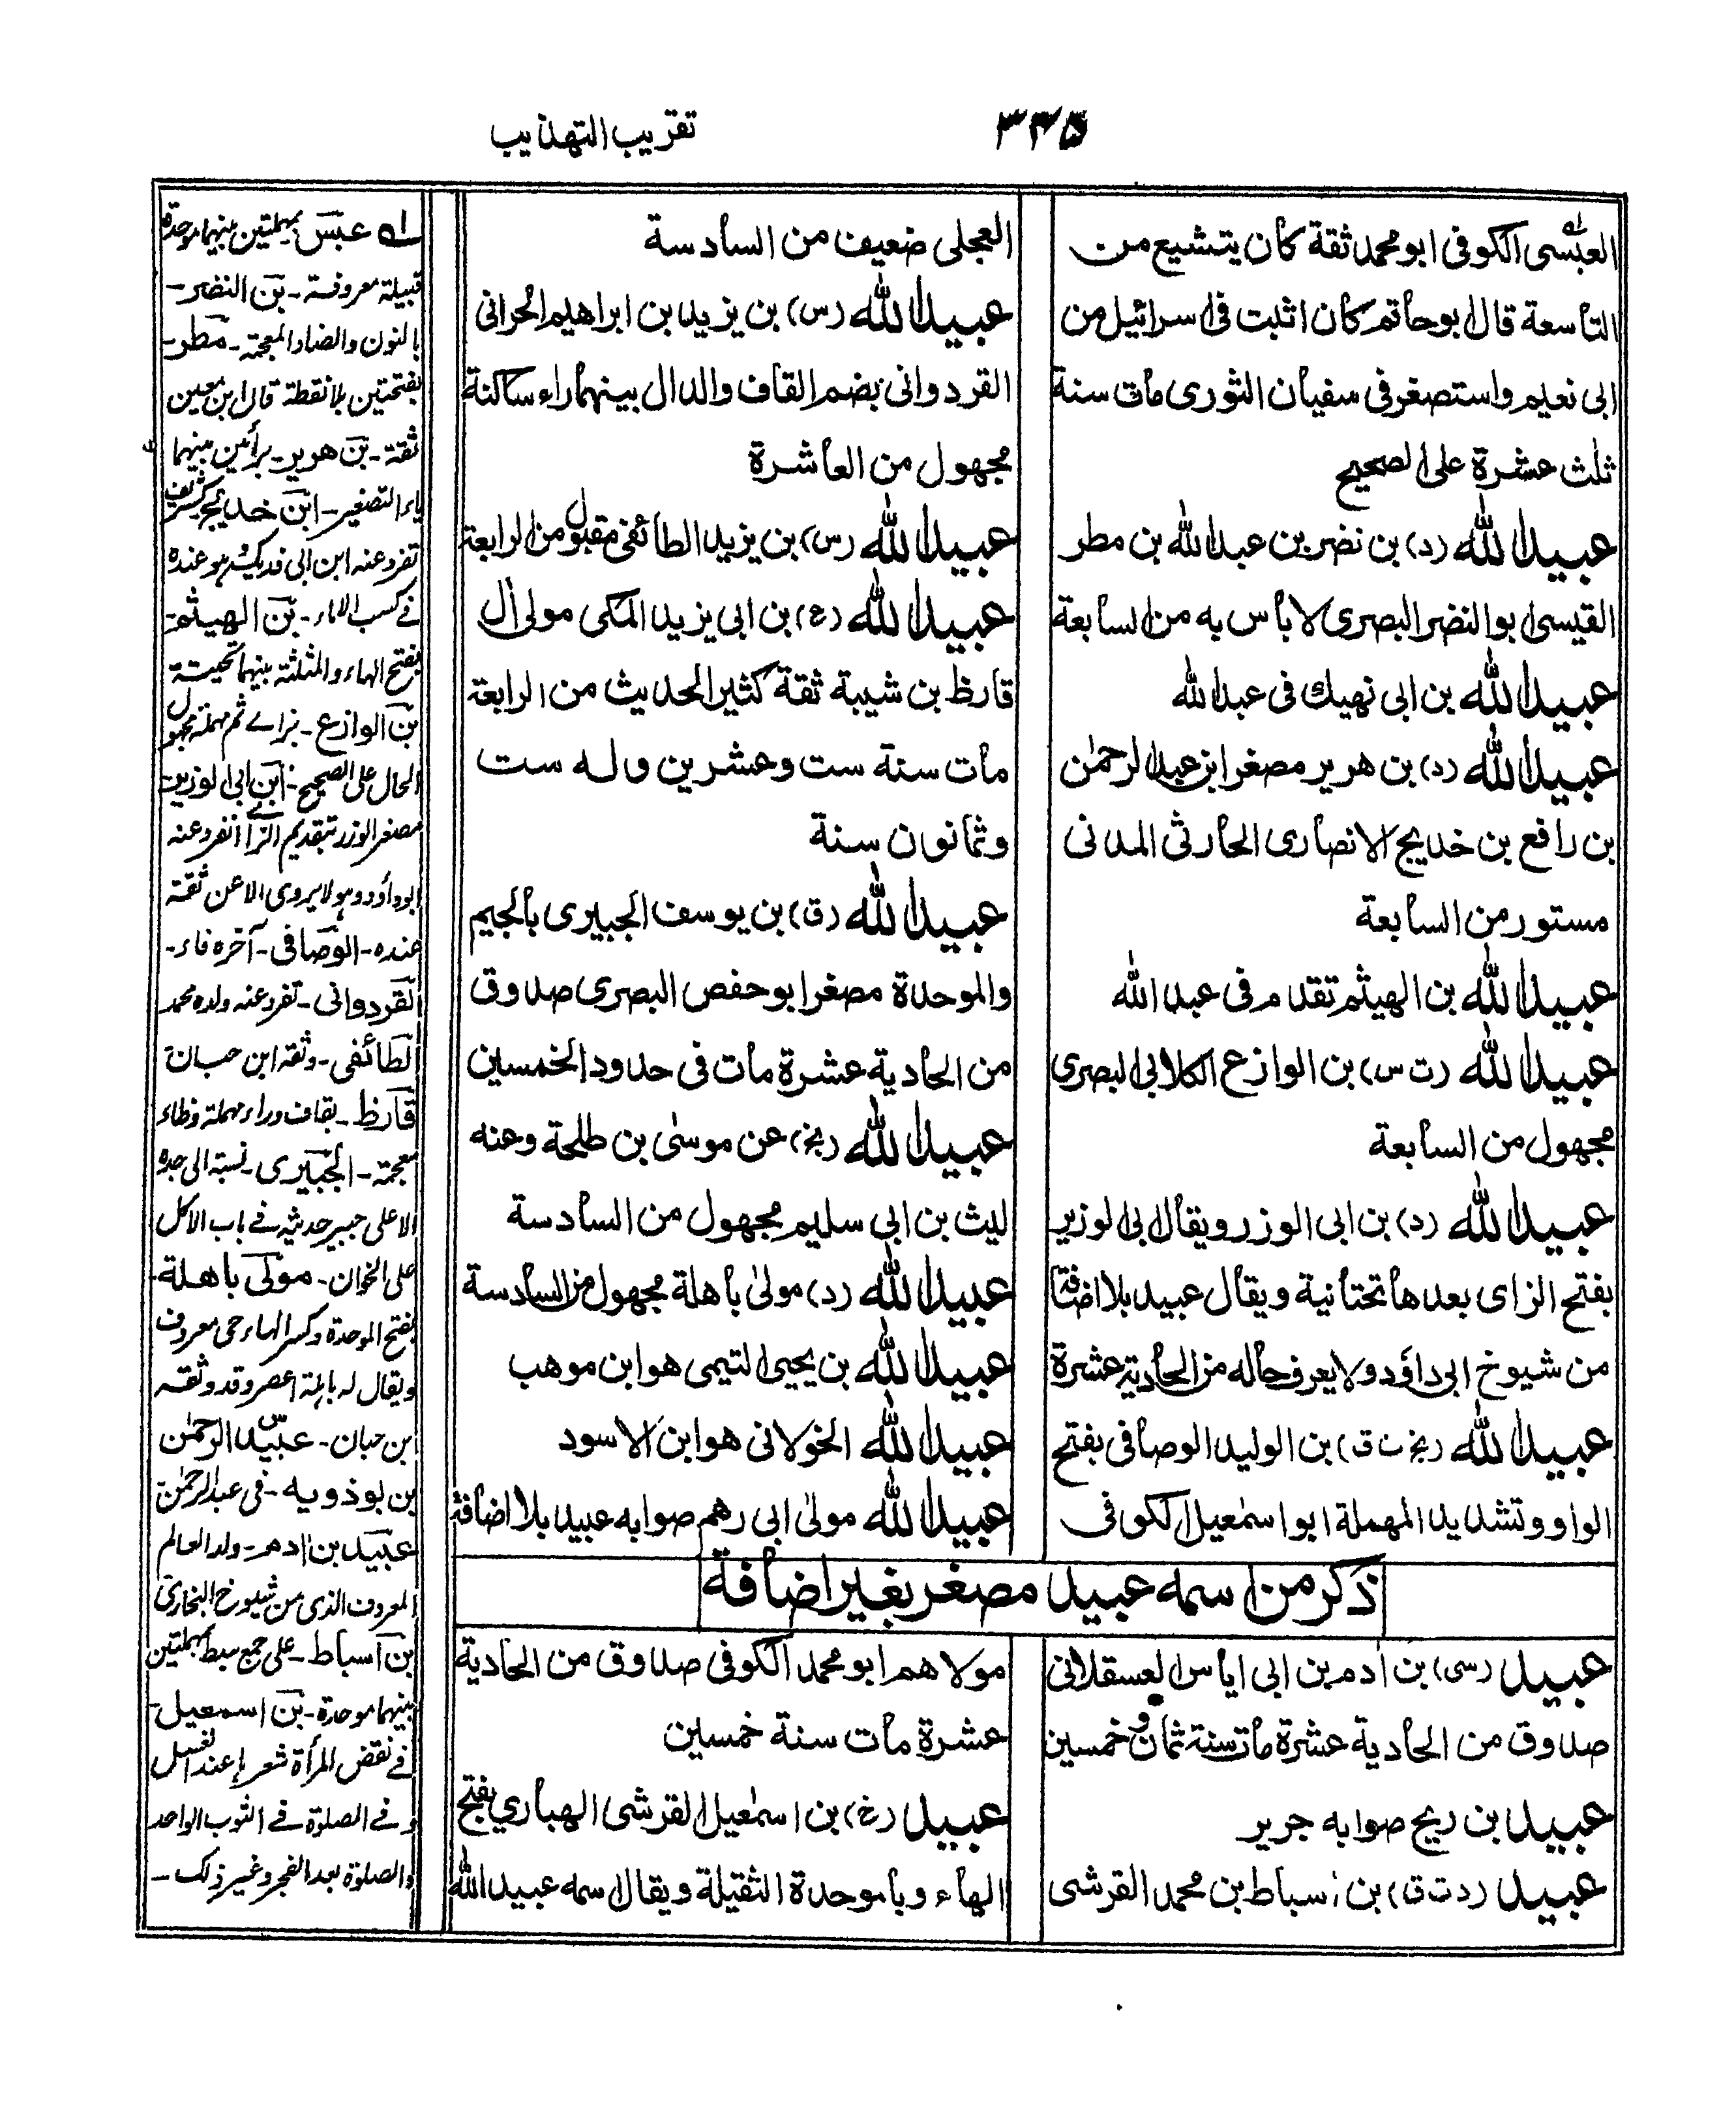 ٣٣٥
تقريب التهذيب
العبسى الكوفى ابو محمد ثقة كان يتشيع من
التاسعة قال ابو حاتم كان اثبت فى اسرائيل من
ابى نعيم واستصغر فى سفيان الثورى مات سنة
ثلث عشرة على الصحيح
عبيد الله (د) بن نضر بن عبد الله بن مطر
القيسى ابو النضر البصرى لا بأس به من السابعة
عبيد الله بن ابى نهيك فى عبد الله
عبيد الله (د) بن هرير مصغر ابن عبد الرحمٰن
بن رافع بن خديج الانصارى الحارثى المدنى
مستور من السابعة
عبيد الله بن الهيثم تقدم فى عبد الله
عبيد الله (ت س) بن الوازع الكلابى البصرى
مجهول من السابعة
عبيد الله (د) بن ابى الوزر ويقال ابى الوزير
بفتح الزاى بعدها تحتانية ويقال عبيد بلا اضافة
من شيوخ ابى داؤد ولا يعرف حاله من الحادية عشرة
عبيد الله (بخ ت ق) بن الوليد الوصافى بفتح
الواو وتشديد المهملة ابو اسمٰعيل الكوفى
العجلى ضعيف من السادسة
عبيد الله (س) بن يزيد بن ابراهيم الحرانى
القردوانى بضم القاف والدال بينهما راء ساكنة
مجهول من العاشرة
عبيد الله (س) بن يزيد الطائفى مقبول من الرابعة
عبيد الله (ع) بن ابى يزيد المكى مولى اٰل
قارظ بن شيبة ثقة كثير الحديث من الرابعة
مات سنة ست وعشرين وله ست
وثمانون سنة
عبيد الله (ق) بن يوسف الجبيرى بالجيم
والموحدة مصغر ابو حفص البصرى صدوق
من الحادية عشرة مات فى حدود الخمسين
عبيد الله (بخ) عن موسىٰ بن طلحة وعنه
ليث بن ابى سليم مجهول من السادسة
عبيد الله (د) مولىٰ باهلة مجهول من السادسة
عبيد الله بن يحيى التيمى هو ابن موهب
عبيد الله الخولانى هو ابن الاسود
عبيد الله مولىٰ ابى رهم صوابه عبيد بلا اضافة
ذكر من اسمه عبيد مصغر بغير اضافة
عبيد (سى) بن اٰدم بن ابى اياس العسقلانى
صدوق من الحادية عشرة مات سنة ثمان وخمسين
عبيد بن ريج صوابه جرير
عبيد (د ت ق) بن اسباط بن محمد القرشى
مولاهم ابو محمد الكوفى صدوق من الحادية
عشرة مات سنة خمسين
عبيد (خ) بن اسمٰعيل القرشى الهبارى بفتح
الهاء وباموحدة الثقيلة ويقال اسمه عبيد الله
له عبس بمهملتين بينهما موحدة
قبيلة معروفة - بن النضر -
بالنون والضاد المعجمة - مطر -
بفتحتين بلا نقطة قال ابن معين
ثقة - بن هرير - برائين بينهما
ياء التصغير - ابن خديج كشريف
تفرد عنه ابن ابى فديك وهو عنده
فے كسب الاماء - بن الهيثم -
بفتح الهاء والمثلثة بينهما تحيتة
بن الوازع - بزاے ثم مهملة مجهول
الحال على الصحيح - ابن ابى الوزير -
مصغر الوزر بتقديم الزاے انفرد عنه
ابوداؤد وهو لا يروى الا عن ثقة
عنده - الوصافى - آخره فاء -
القردوانى - تفرد عنه ولده محمد
الطائفى - وثقه ابن حبان
قارظ - بقاف وراء مهملة وظاء
معجمة - الجبيرى - نسبة الى جده
الاعلى جبير حديثه فے باب الاكل
على الخوان - مولى باهلة -
بفتح الموحدة وكسر الهاء حى معروف
ويقال له باهلة اعصر وقد وثقه
ابن حبان - عبيد الرحمٰن
بن بوذويه - فى عبد الرحمٰن
عبيد بن اٰدم - ولد العالم
المعروف الذى من شيوخ البخارى
بن اسباط - على جمع سبط بمهملتين
بينهما موحدة - بن اسمعيل -
فے نقض المرأة شعرها عند الغسل
و فے الصلوة فے الثوب الواحد
والصلوة بعد الفجر وغير ذلك -